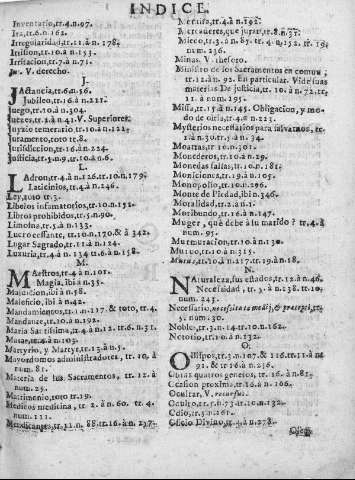 INDICE.
Inventario, tr.4. n.97.
Ira, tr.6. n.162.
Irregularidad, tr.11. à n.178.
Irrision, tr.10. à n.153.
Irritacion, tr.7. à n.71.
V. derecho.
J.
Jactancia, tr.6. n.56.
Jubileo, tr.16. à n.221.
Juego, tr.10. à n.304.
Juezes, tr.1. à n.41. V. Superiores.
Juyzio temerario, tr.10. à n.122.
Juramento, toto tr.8.
Jurisdiccion, tr.16. à n.224.
Justicia, tr.3. n.9. tr.10. à n.6.
L.
Ladron, tr.4. à n.126. tr.10. n.179.
Lacticinios, tr.4. à n.246.
Ley, toto tr.3.
Libelos infamatorios, tr.10. n.152.
Libros prohibidos, tr.5. n.90.
Limosna, tr.5. à n.133.
Lucro cessante, tr.10. n.170. & à 342.
Lugar Sagrado, tr.11. à n.124.
Luxuria, tr.4. à n.134. tr.6. à n.158.
M.
Maestros, tr.4. à n.101.
Magia, ibi à n.35.
Maldicion, ibi à n.58.
Maleficio, ibi à n.42.
Mandamientos, tr.1. n.117. & toto, tr.4.
Mandante, tr.10. à n.192.
Maria Santissima, tr.4. à n.12. tr.6. n.31.
Matar, tr.4. à n.103.
Martyrio, y Martyr, tr.13. à n.5.
Mayordomos administradores, tr.10. à
num. 81.
Materia de los Sacramentos, tr.12. à
num. 25.
Matrimonio, toto tr.19.
Medicos medicina, tr.2. à n.60. tr.4.
num. 111.
Mendicantes, tr.11. n.88. tr.16. à n.237.
Mentira, tr.4. à n.192.
Mercaderes, que juran, tr.8. n.31.
Miedo, tr.3. à n.87. tr.4. n.152. tr.19.
num. 236.
Minas. V. thesoro.
Ministro de los Sacramentos en comun,
tr.12. à n.92. En particular. Vide suas
materias De justicia, tr.10. à n.72. tr.
11. à num. 195.
Missa, tr.15. à n.145. Obligacion, y mo-
do de oirla, tr.4. à n.223.
Mysterios necessarios para salvarnos, tr.
1. à n.30. tr.5. à n.34.
Moatras, tr.10. n.301.
Monederos, tr.10. à n.29.
Monedas falsas, tr.10. n.181.
Moniciones, tr.19. à n.105.
Monopolio, tr.10. n.296.
Monte de Piedad, ibi n.346.
Moralidad, tr.2. à n.1.
Moribundo, tr.16. à n.147.
Muger, què debe à su marido? tr.4. à
num. 95.
Murmuracion, tr.10. à n.130.
Mutuo, tr.10. à n.315.
tr.10. à n.117. tr.19. à n.18.
N.
Naturaleza, sus estados, tr.12. à n.46.
Necessidad, tr.3. à n.238. tr.10.
num. 243.
Necessario, necessitate medij, & præcepti, tr.
5. num. 30.
Noble, tr.3. n.14. tr.10. n.162.
Notorio, tr.10. à n.132.
O.
Obispos, tr.3. n.107. & 116. tr.11. à n.
91. & tr.16. à n.236.
Obras quatro generos, tr.16. à n.81.
Ocasion proxima, tr.16. à n.106.
Ocultar, V.
Oculto, tr.5. n.73. tr.10. n.132.
Odio, tr.5. n.161.
Oficio Divino, tr.4. à n.278.